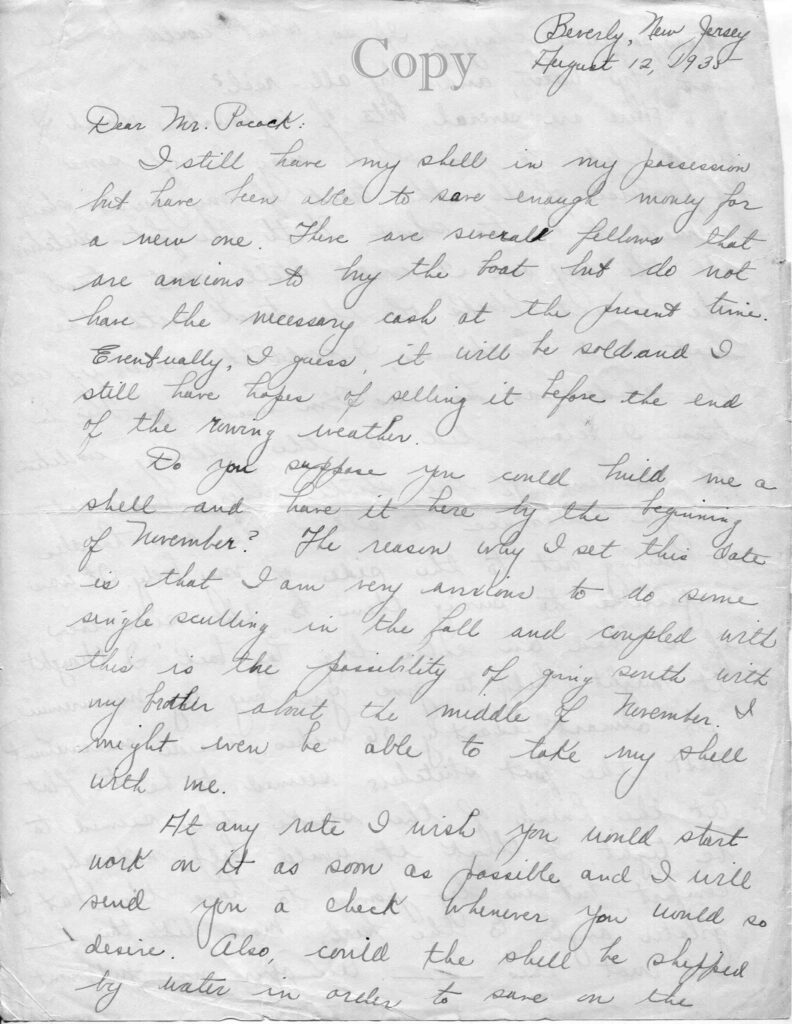 Copy
Beverly, New Jersey
August 12, 1935
Dear Mr. Pocock:
I still have my shell in my possession
but have been able to save enough money for
a new one. There are several fellows that
are anxious to buy the boat but do not
have the necessary cash at the present time.
Eventually, I guess, it will be sold and I
still have hopes of selling it before the end
of the rowing weather.
Do you suppose you could build me a
shell and have it here by the beginning
of November? The reason why I set this date
is that I am very anxious to do some
single sculling in the fall and coupled with
this is the possibility of going south with
my brother about the middle of November. I
might even be able to take my shell
with me.
At any rate I wish you would start
work on it as soon as possible and I will
send you a check whenever you would so
desire. Also, could the shell be shipped
by water in order to save on the